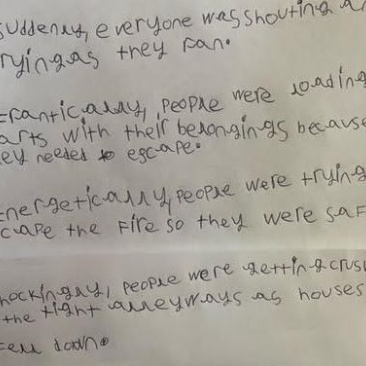 suddenly, everyone was shouting a
rying as they ran.
Frantically, people were loading
arts with their belongings because
ey needed to escape.
Energetically, people were trying
cape the fire so they were saf
hockingly, people were getting crus
the tight alleyways as houses
Fell down.